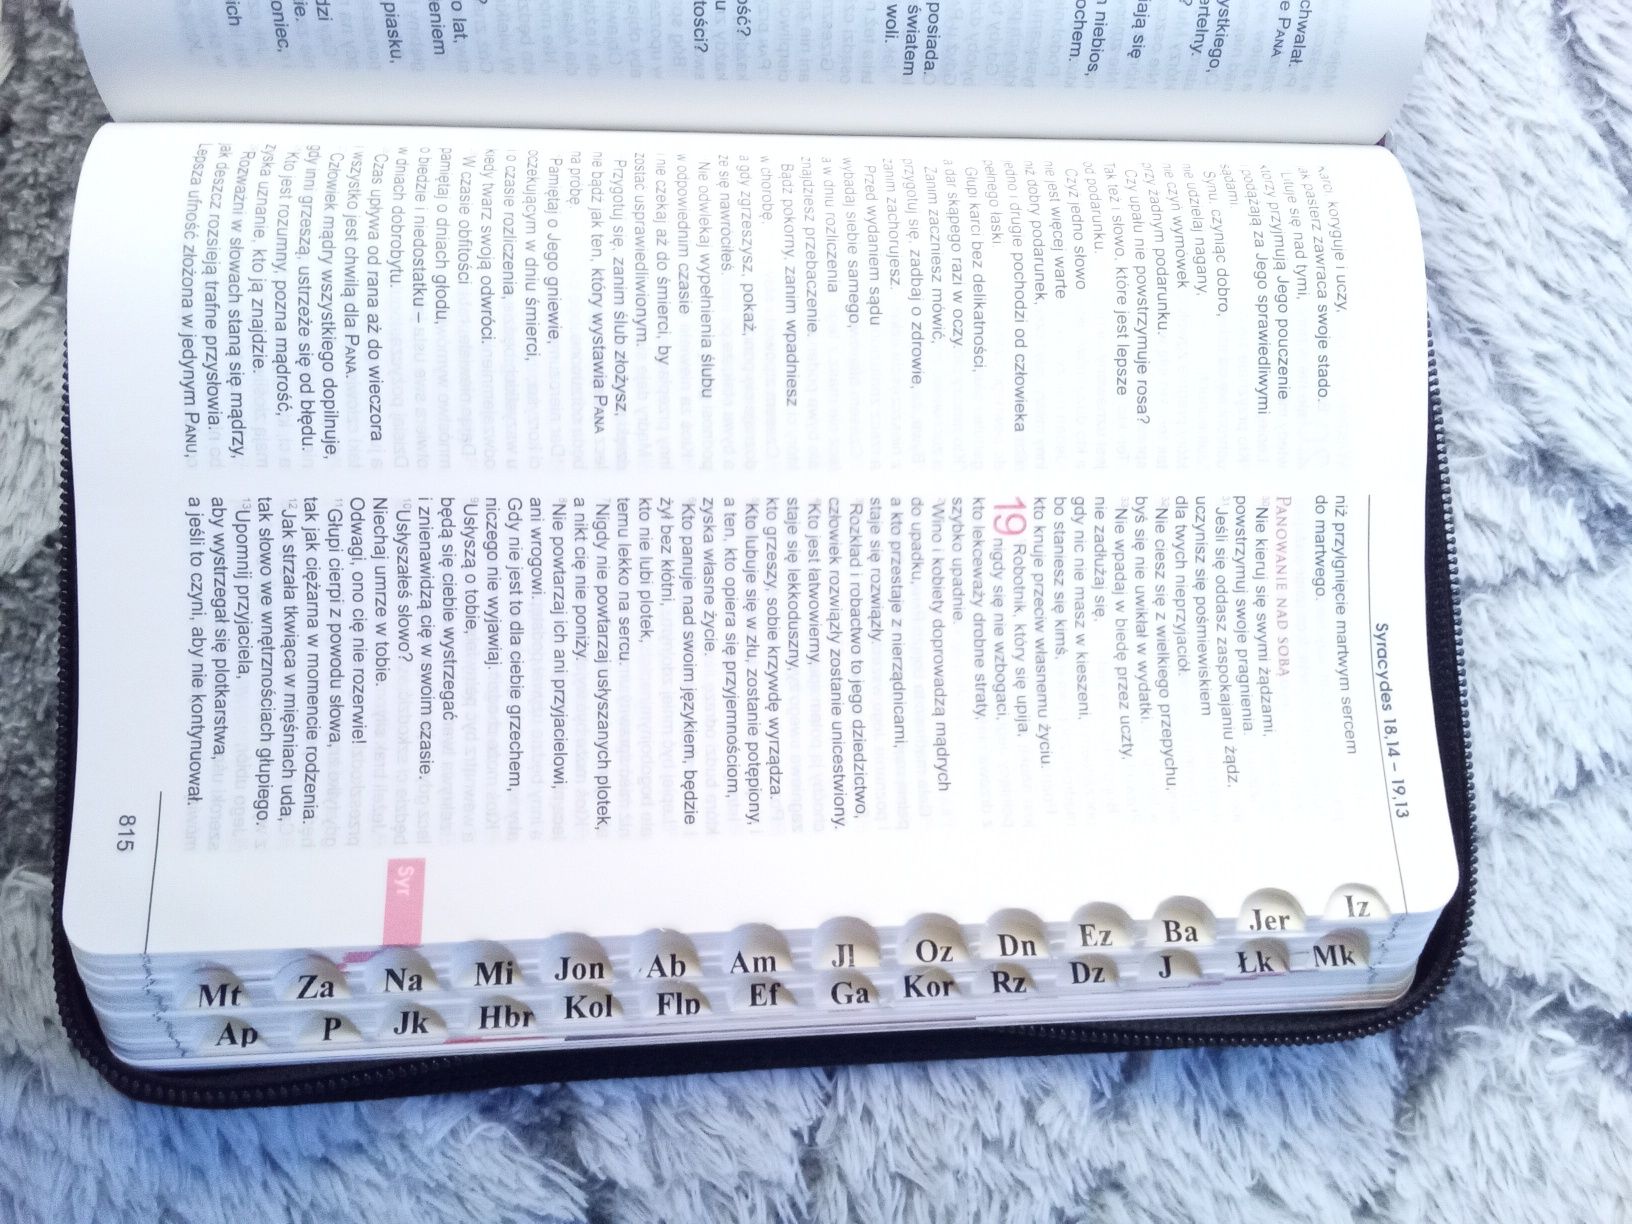 chwalał.
e PANA
ystkiego,
ertelny.
?
iają się
niebios,
ochem.
posiada.
światem
woli.
ość?
u
tości?
o lat,
eniem
piasku,
dzi
ie.
oniec,
ich
Syracydes 18,14 – 19,13
koryguje i uczy,
jak pasterz zawraca swoje stado.
Lituje się nad tymi,
którzy przyjmują Jego pouczenie
podążają za Jego sprawiedliwymi
sądami.
Synu, czyniąc dobro,
nie udzielaj nagany,
nie czyń wymówek
przy żadnym podarunku.
Czy upału nie powstrzymuje rosa?
Tak też i słowo, które jest lepsze
od podarunku.
Czyż jedno słowo
nie jest więcej warte
niż dobry podarunek,
jedno i drugie pochodzi od człowieka
pełnego łaski.
Głupi karci bez delikatności,
a dar skąpego razi w oczy.
Zanim zaczniesz mówić,
przygotuj się, zadbaj o zdrowie,
zanim zachorujesz.
Przed wydaniem sądu
wybadaj siebie samego,
a w dniu rozliczenia
znajdziesz przebaczenie.
Bądź pokorny, zanim wpadniesz
w chorobę,
a gdy zgrzeszysz, pokaż,
że się nawróciłeś.
Nie odwlekaj wypełnienia ślubu
w odpowiednim czasie
i nie czekaj aż do śmierci, by
zostać usprawiedliwionym.
Przygotuj się, zanim ślub złożysz,
nie bądź jak ten, który wystawia PANA
na próbę.
Pamiętaj o Jego gniewie,
oczekującym w dniu śmierci,
i o czasie rozliczenia,
kiedy twarz swoją odwróci.
W czasie obfitości
pamiętaj o dniach głodu,
o biedzie i niedostatku –
w dniach dobrobytu.
Czas upływa od rana aż do wieczora
i wszystko jest chwilą dla PANA.
Człowiek mądry wszystkiego dopilnuje,
gdy inni grzeszą, ustrzeże się od błędu.
Kto jest rozumny, pozna mądrość,
zyska uznanie, kto ją znajdzie.
Rozważni w słowach staną się mądrzy,
jak deszcz rozsieją trafne przysłowia.
Lepsza ufność złożona w jedynym PANU,
niż przylgnięcie martwym sercem
do martwego.
PANOWANIE NAD SOBĄ
30Nie kieruj się swymi żądzami,
powstrzymuj swoje pragnienia.
31Jeśli się oddasz zaspokajaniu żądz,
uczynisz się pośmiewiskiem
dla twych nieprzyjaciół.
32Nie ciesz się z wielkiego przepychu,
byś się nie uwikłał w wydatki.
33Nie wpadaj w biedę przez uczty,
nie zadłużaj się,
gdy nic nie masz w kieszeni,
bo staniesz się kimś,
kto knuje przeciw własnemu życiu.
19 Robotnik, który się upija,
nigdy się nie wzbogaci,
kto lekceważy drobne straty,
szybko upadnie.
2Wino i kobiety doprowadzą mądrych
do upadku,
a kto przestaje z nierządnicami,
staje się rozwiązły.
3Rozkład i robactwo to jego dziedzictwo,
człowiek rozwiązły zostanie unicestwiony.
4Kto jest łatwowierny,
staje się lekkoduszny,
kto grzeszy, sobie krzywdę wyrządza.
5Kto lubuje się w złu, zostanie potępiony,
a ten, kto opiera się przyjemnościom,
zyska własne życie.
6Kto panuje nad swoim językiem, będzie
żył bez kłótni,
kto nie lubi plotek,
temu lekko na sercu.
7Nigdy nie powtarzaj usłyszanych plotek,
a nikt cię nie poniży.
8Nie powtarzaj ich ani przyjacielowi,
ani wrogowi.
Gdy nie jest to dla ciebie grzechem,
niczego nie wyjawiaj.
9Usłyszą o tobie,
będą się ciebie wystrzegać
i znienawidzą cię w swoim czasie.
10Usłyszałeś słowo?
Niechaj umrze w tobie.
Odwagi, ono cię nie rozerwie!
11Głupi cierpi z powodu słowa,
tak jak ciężarna w momencie rodzenia.
12Jak strzała tkwiąca w mięśniach uda,
tak słowo we wnętrznościach głupiego.
13Upomnij przyjaciela,
aby wystrzegał się plotkarstwa,
a jeśli to czyni, aby nie kontynuował.
815
Syr
Iz
Jer
Ba
Ez
Dn
Oz
Jl
Am
Ab
Jon
Mi
Na
Za
Mt
Mk
Łk
J
Dz
Rz
Kor
Ga
Ef
Flp
Kol
Hbr
Jk
P
Ap